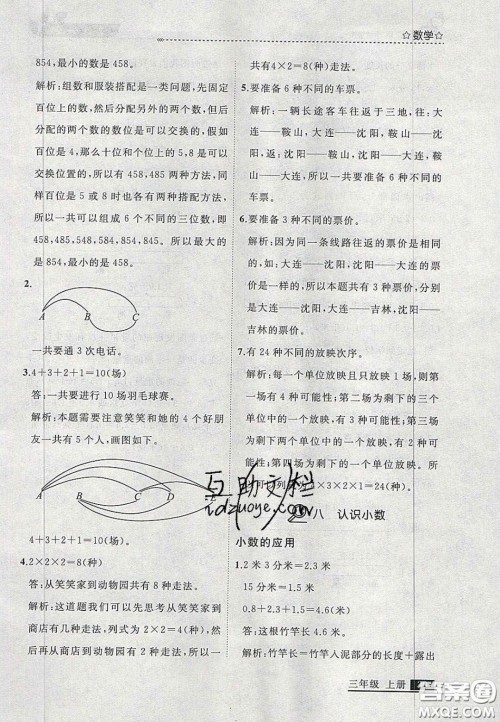 ☆数学☆
854,最小的数是 458。
解析:组数和服装搭配是一类问题,先固定
百位上的数,然后分配另外的两个数,但后
分配的两个数的数位是可以交换的。假如
百位是 4,那么十位和个位上的 5,8 是可以
交换位置的,所以有 458,485 两种方法,同
样百位是 5 或 8 时也各有两种搭配方法,
所以一共可以组成 6 个不同的三位数,即
458,485,548,584,854,845。所以最大的
是 854,最小的是 458。
2.
A B C
一共要通 3 次电话。
3.4+3+2+1=10(场)
答:一共要进行 10 场羽毛球赛。
解析:本题需要注意笑笑和她的 4 个好朋
友一共有 5 个人,画图如下。
A B C D
4+3+2+1=10(场)。
4.2×2×2=8(种)
答:从笑笑家到动物园共有 8 种走法。
解析:这道题我们可以先思考从笑笑家到
商店有几种走法,列式为 2×2=4(种),然
后再从商店到动物园有 2 种走法,所以一
共有 4×2=8(种)走法。
5.要准备 6 种不同的车票。
解析:一辆长途客车往返于三地,往:大
连——鞍山,大连——沈阳,鞍山——沈阳,
返:沈阳——鞍山,沈阳——大连,鞍山——
大连,所以一共要准备 6 种不同的
车票。
6.要准备 3 种不同的票价。
解析:因为同一条线路往返的票价是相同
的,如:大连——沈阳,沈阳——大连的票
价是一样的,所以共有大连——沈阳的票
价,沈阳——吉林的票价,大连——
吉林的票价。
7.有 24 种不同的放映次序。
解析:每一个单位放映且只放映 1 场,则第
一场有 4 种可能性;第二场为剩下的三个
单位中的一个放映,有 3 种可能性;第三场
为剩下两个单位中的一个放映,有 2 种可
能性;第四场为剩下的一个单位放映,所
八 认识小数
小数的应用
1.2 米 3 分米=2.3 米
15 分米=1.5 米
0.8+2.3+1.5=4.6(米)
答:这根竹竿长 4.6 米。
解析:竹竿长=竹竿入泥部分的长度+露出
三年级 上册
互助文栏
idzuoye.com
答案圈
MXQE.COM